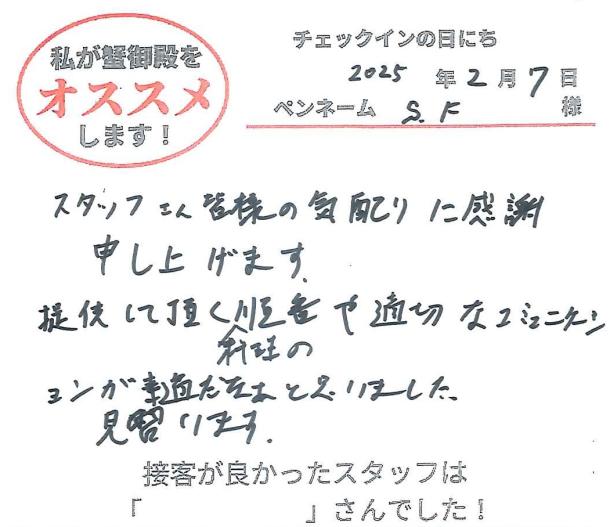 私が蟹御殿を
オススメ
します！
チェックインの日にち
2025 年 2 月 7 日
ペンネーム S.F 様
スタッフさん皆様の気配りに感謝
申し上げます。
提供して頂く順番や適切なコミュニケーシ
料理の
ョンが素適だなぁと思いました。
見習います。
接客が良かったスタッフは
「　　　　　　」さんでした！